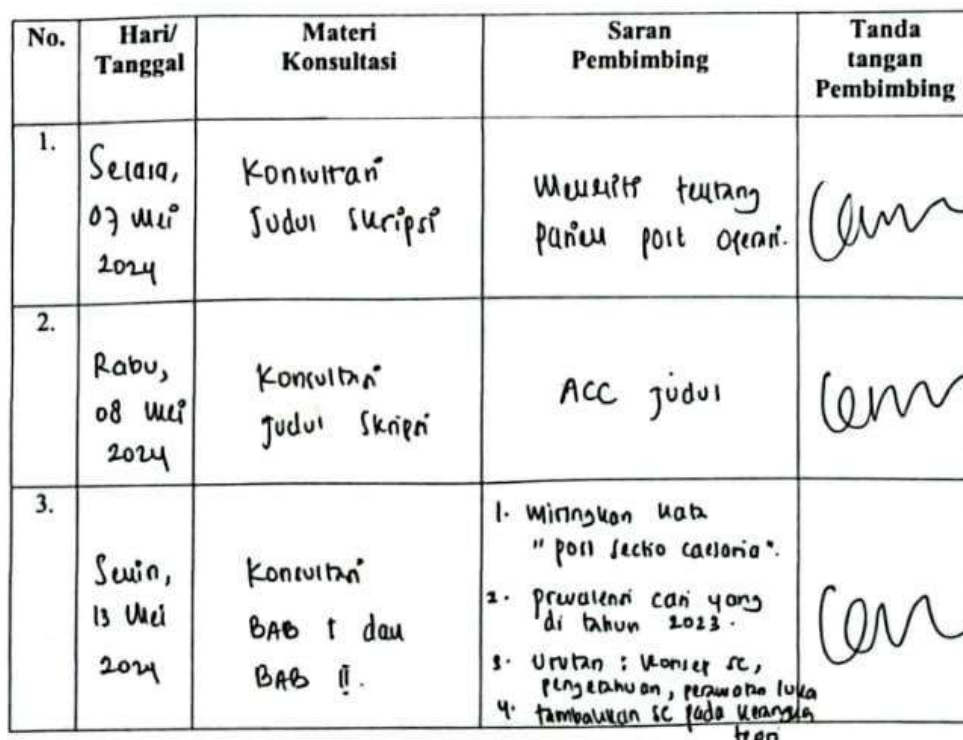 No.
Hari/
Tanggal
Materi
Konsultasi
Saran
Pembimbing
Tanda
tangan
Pembimbing
1.
Selasa,
07 Mei
2024
Konsultasi
Judul Skripsi
Meneliti tentang
pasien post operasi.
2.
Rabu,
08 Mei
2024
Konsultasi
Judul Skripsi
ACC judul
3.
Senin,
13 Mei
2024
Konsultasi
BAB I dan
BAB II.
1. Miringkan kata
"post sectio caesaria".
2. Prevalensi cari yang
di tahun 2023.
3. Urutan : Konsep SC,
pengetahuan, perawatan luka
4. tambahkan SC pada kerangka
teori